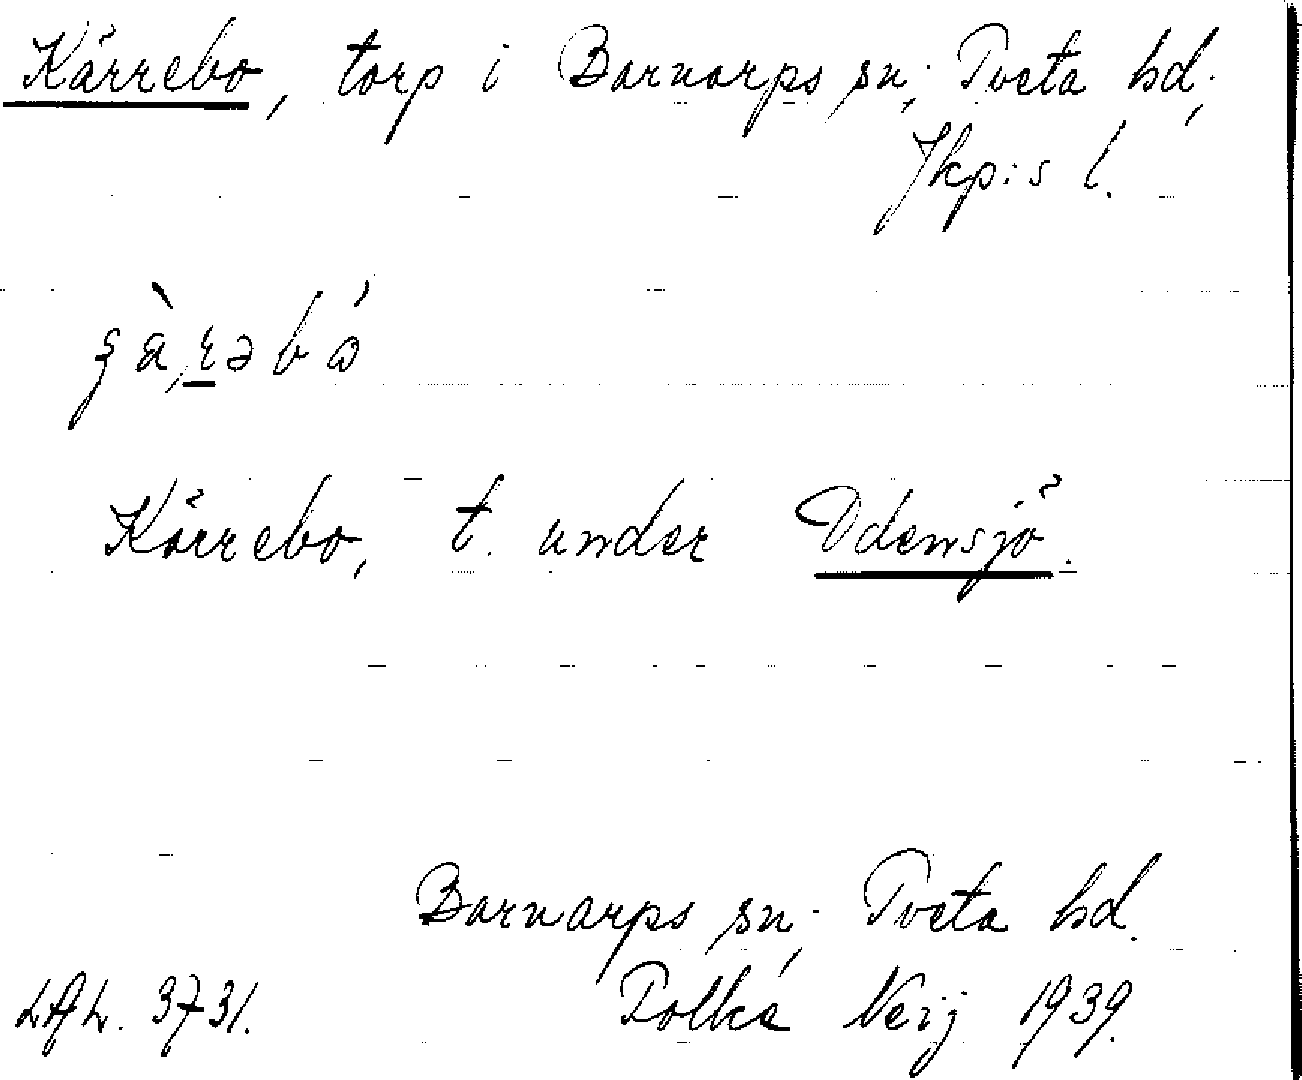 Kärrebo, torp i Barnarps sn, Tveta hd,
Jkp:s l.
Kärrebo, t. under Odensjö.
Barnarps sn, Tveta hd.
LAL. 3731. Tolke Neij 1939.